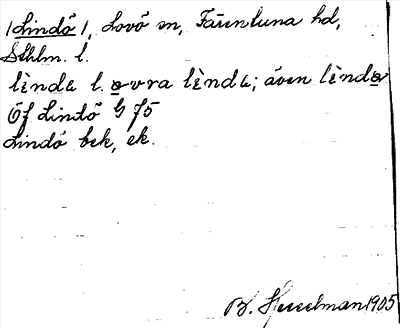 /Lindö/, Lovö sn, Färentuna hd,
Sthlm. l.
lìnda l. øvra lìnda; även lìndø
Öf Lindö G 75
Lindö bek, ek.
B. Hesselman 1905